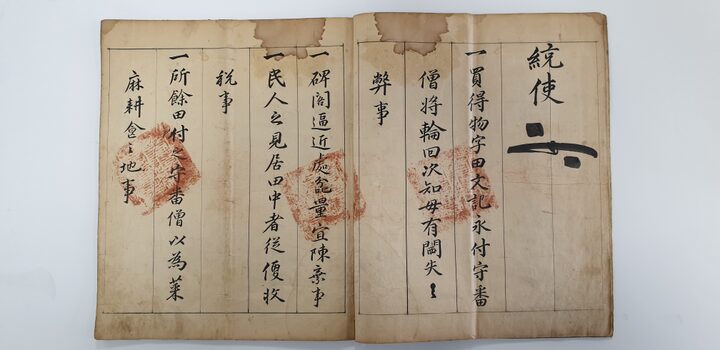 統使
一買得物字田文記永付守番
僧將輪回次知毋有闕失之
弊事
一碑閣逼近處量宜陳弃事
一民人之見居田中者從優收
税事
一所餘田付之守番僧以為菜
麻耕食之地事